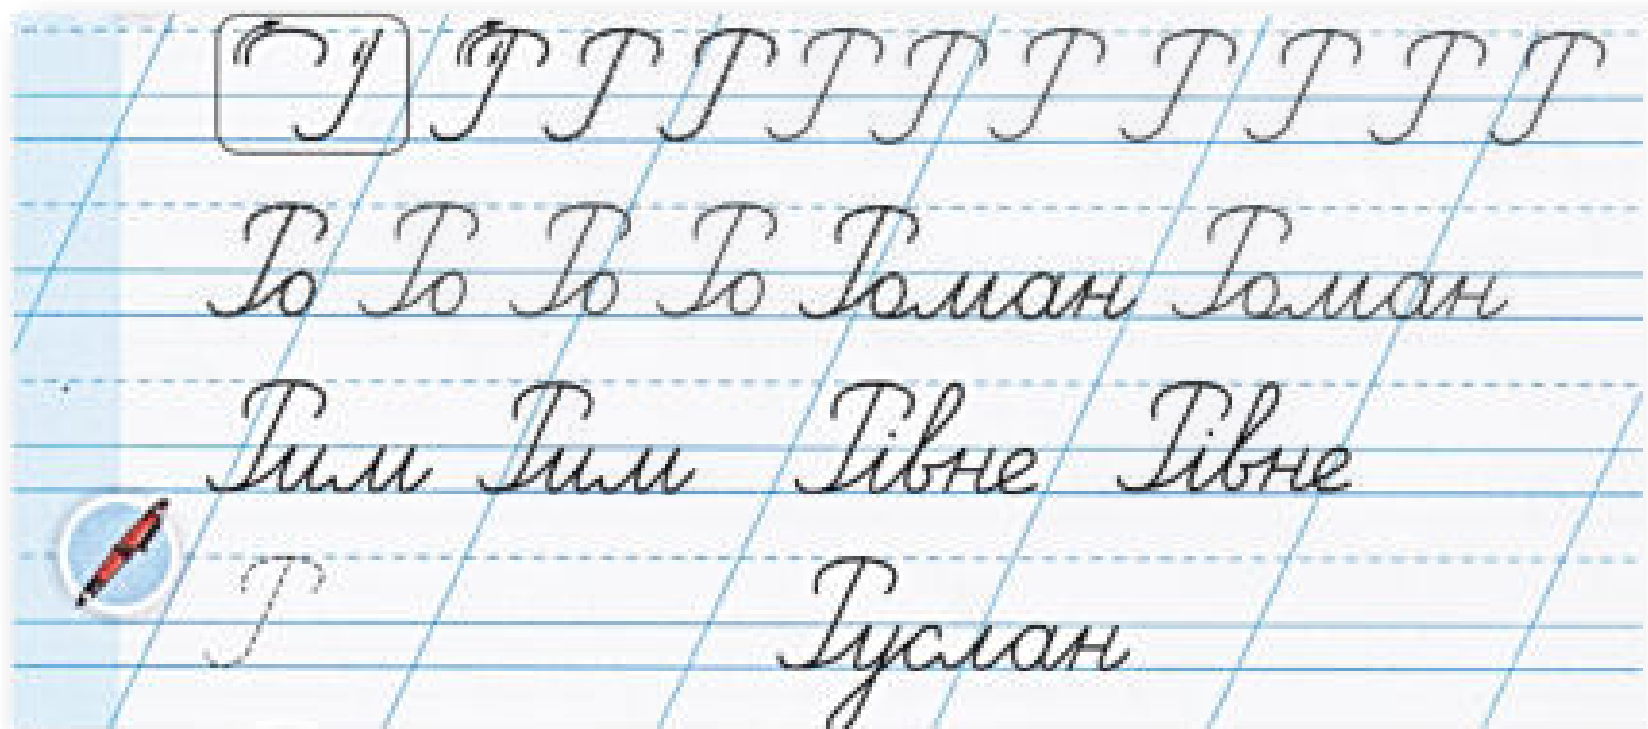 Р Р Р Р Р Р Р Р Р Р
Ро Ро Ро Ро Роман Роман
Рим Рим Рівне Рівне
Р Руслан